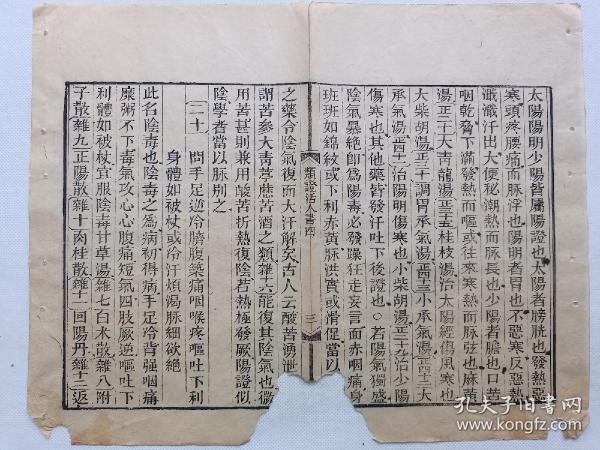 太陽陽明少陽皆屬陽證也太陽者膀胱也發熱惡
寒頭疼腰痛而脈浮也陽明者胃也不惡寒反惡熱
濈濈汗出大便秘潮熱而脈長也少陽者膽也口苦
咽乾脅下滿發熱而嘔或往來寒熱而脈弦也麻黃
湯正二十大青龍湯正三十五桂枝湯治太陽經傷風寒也
大柴胡湯正三十調胃承氣湯正四十小承氣湯正四十二大
承氣湯正四十一治陽明傷寒也小柴胡湯正二十九治少陽
傷寒也其他藥皆發汗吐下後證也○若陽氣獨盛
陰氣暴絕即為陽毒必發躁狂走妄言面赤咽痛身
班班如錦紋或下利赤黃脈洪實或滑促當以
類證活人書四
三
之藥令陰氣復而大汗解矣古人云酸苦湧泄
謂苦參大青葶藶苦酒之類雜十六能復其陰氣也微
用苦甚則兼用酸苦折熱復陰若熱極發厥陽證似
陰學者當以脈別之
二十 問手足逆冷臍腹築痛咽喉疼嘔吐下利
身體如被杖或冷汗煩渴脈細欲絕
此名陰毒也陰毒之為病初得病手足冷背強咽痛
糜粥不下毒氣攻心心腹痛短氣四肢厥逆嘔吐下
利體如被杖宜服陰毒甘草湯雜七白朮散雜八附
子散雜九正陽散雜十肉桂散雜十一回陽丹雜十二返
孔夫子旧书网
www.kongfz.com